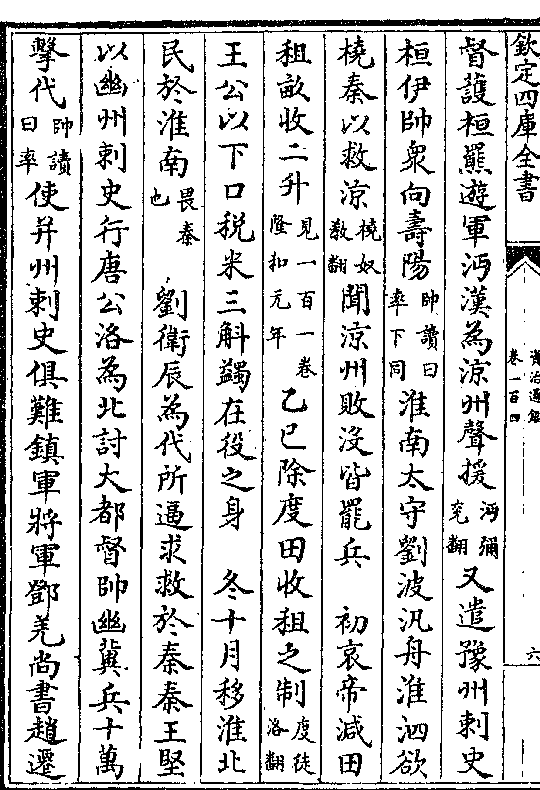 欽定四庫全書
資治通鑑
卷一百四
六
督護桓羆遊軍沔漢為涼州聲援沔彌兖翻又遣豫州刺史
桓伊帥衆向壽陽帥讀曰率下同淮南太守劉波汎舟淮泗欲
橈秦以救涼橈奴教翻聞涼州敗沒皆罷兵　初哀帝減田
租畝收二升見一百一卷隆和元年乙巳除度田收租之制度徒洛翻
王公以下口税米三斛蠲在役之身　冬十月移淮北
民於淮南畏秦也　劉衛辰為代所逼求救於秦秦王堅
以幽州刺史行唐公洛為北討大都督帥幽冀兵十萬
擊代帥讀曰率使并州刺史俱難鎮軍將軍鄧羌尚書趙遷